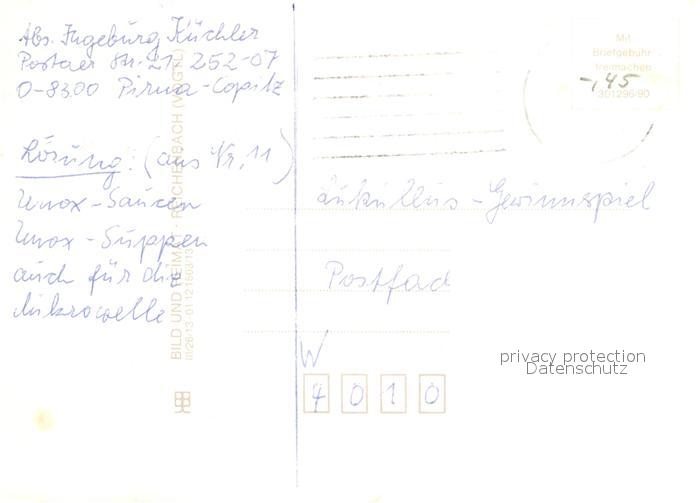 Abs. Ingeburg Küchler
Postaer Str. 21 252-07
O-8300 Pirna-Copitz
Lösung: (aus Nr. 11)
Unox-Saucen
Unox-Suppen
auch für die
Mikrowelle
BILD UND HEIMAT · REICHENBACH (VOGTL)
III/26-13 01 12 1503/13
Mit
Briefgebühr
freimachen
-,45
301296-90
Lukullus-Gewinnspiel
Postfach
W
4 0 1 0
privacy protection
Datenschutz